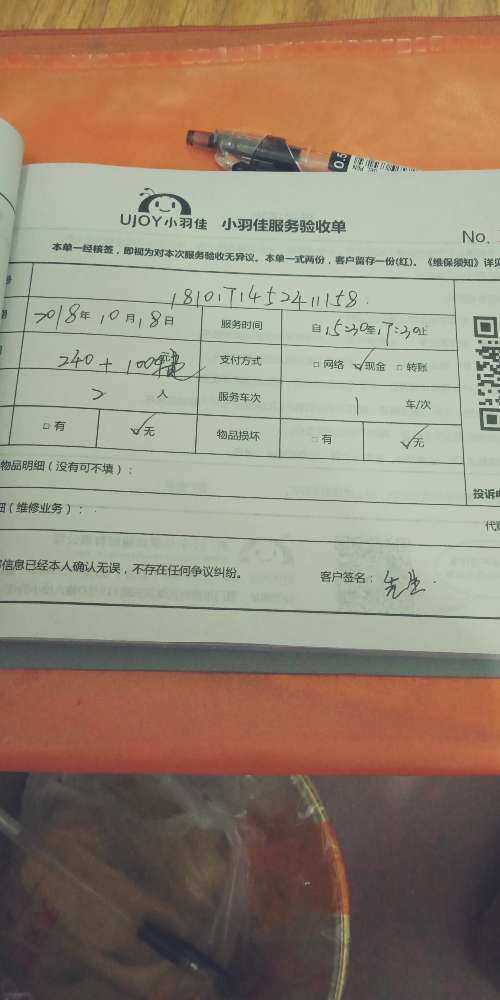 0.5
UJOY小羽佳 小羽佳服务验收单
No.
本单一经核签，即视为对本次服务验收无异议。本单一式两份，客户留存一份(红)。《维保须知》详见
号 181017145241158.
2018年10月18日 服务时间 自15:30至17:30止
240+100 支付方式 □网络 ✓现金 □转账
2人 服务车次 1 车/次
□有 ✓无 物品损坏 □有 ✓无
物品明细（没有可不填）：
投诉电
细（维修业务）：
代
信息已经本人确认无误，不存在任何争议纠纷。 客户签名：先生.